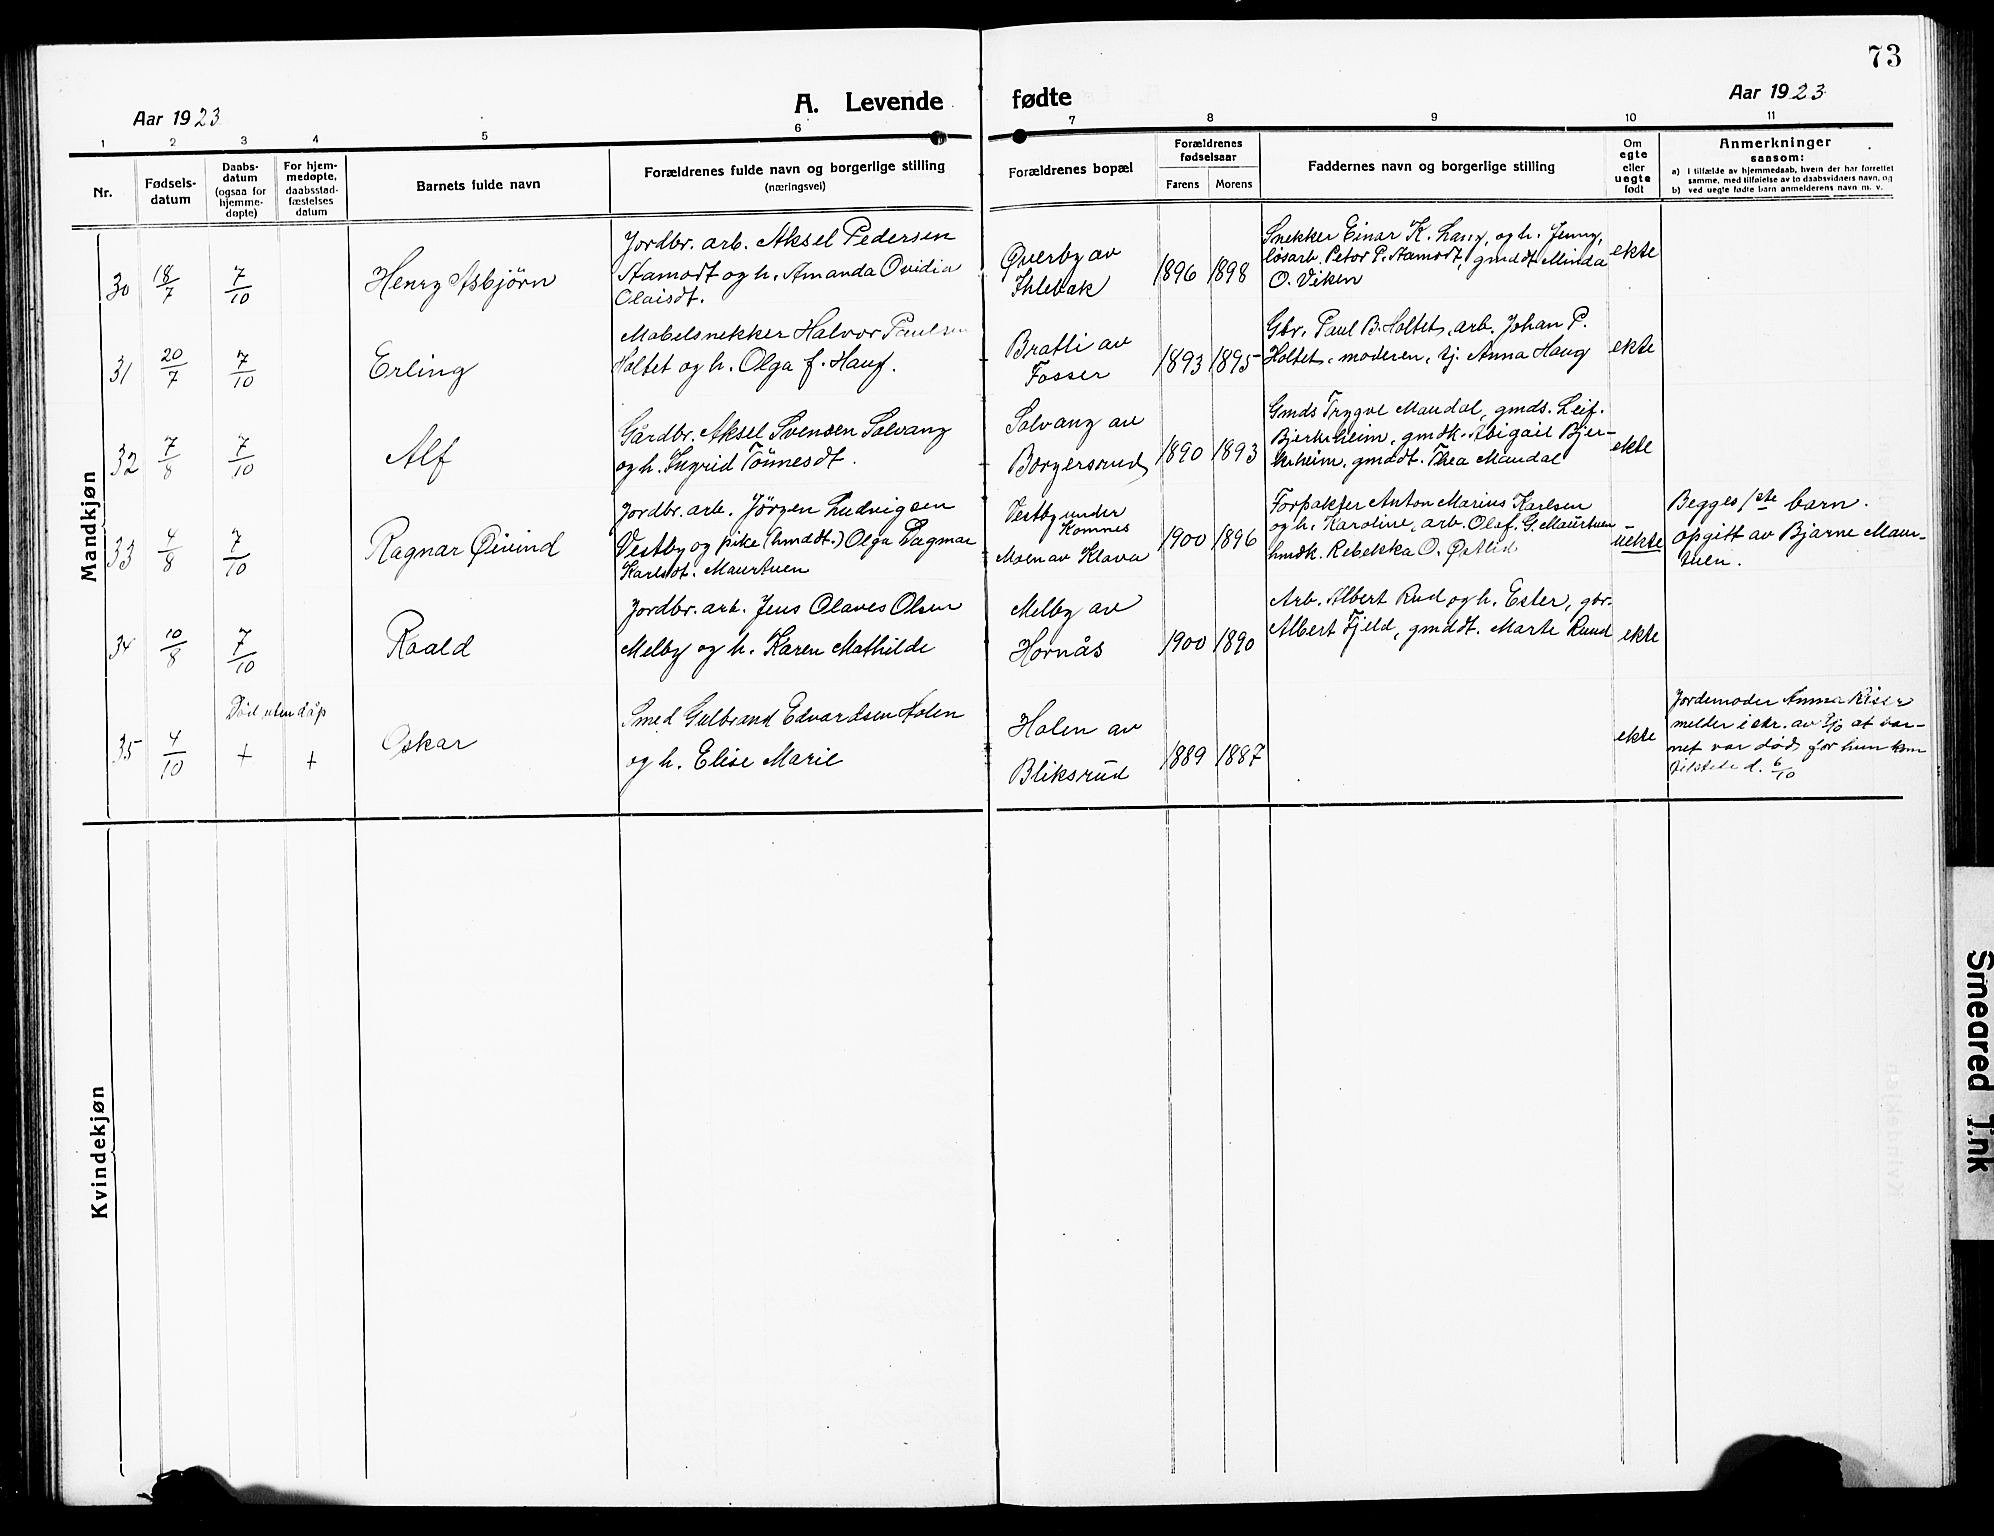 73
Aar 1923
A. Levende
fødte
Aar 1923
1 2 3 4 5 6 7 8 9 10 11
Nr.
Fødsels-
datum
Daabs-
datum
(ogsaa for
hjemme-
døpte)
For hjem-
medøpte,
daabsstad-
fæstelses
datum
Barnets fulde navn
Forældrenes fulde navn og borgerlige stilling
(næringsvei)
Forældrenes bopæl
Forældrenes
fødselsaar
Farens Morens
Faddernes navn og borgerlige stilling
Om
egte
eller
uegte
født
Anmerkninger
saasom:
a) I tilfælde av hjemmedaab, hvem der har forrettet
samme, med tilføielse av to daabsvidners navn, og
b) ved uegte fødte barn anmelderens navn m. v.
Mandkjøn
30 18/7 7/10 Henry Asbjørn
Jordbr. arb. Aksel Pedersen
Stamodt og h. Amanda Ovidia
Olaisdt.
Øverby av
Ihlebæk
1896 1898
Snekker Einar K. Lang, og h. Jenny,
løsarb. Peter P. Stamodt, gmddt Minda
O. Viken
ekte
31 20/7 7/10 Erling
Møbelsnekker Halvor Paulsen
Holtet og h. Olga f. Haug.
Bratli av
Fosser
1893 1895
Gbr. Paul B. Holtet, arb. Johan P.
Holtet, moderen, tj. Anna Haug
ekte
32 7/8 7/10 Alf
Gårdbr. Aksel Svensen Solvang
og h. Ingrid Tönnesdt.
Solvang av
Borgersrud
1890 1893
Gmds Trygve Maudal, gmds. Leif
Bjerkrheim, gmdk. Abigail Bjer-
krheim, gmddt. Thea Maudal
ekte
33 4/8 7/10 Ragnar Øivind
Jordbr. arb. Jörgen Ludvigsen
Vestby og pike (hmddt.) Olga Dagmar
Karlsdt. Maurtuen
Vestby under
Komnes
Moen av Klava
1900 1896
Forpakter Anton Marius Karlsen
og h. Karoline, arb. Olaf G. Maurtuen
hmdk. Rebekka O. Østlid
uekte
Begges 1ste barn.
Opgitt av Bjarne Maur-
tuen.
34 10/8 7/10 Roald
Jordbr. arb. Jens Olaves Olsen
Melby og h. Karen Mathilde
Melby av
Hornås
1900 1890
Arb. Albert Rud og h. Ester, gbr.
Albert Fjeld, gmddt. Marte Ruud
ekte
Död uten dåp
35 4/10 + + Oskar
Smed Gulbrand Edvardsen Holen
og h. Elise Marie
Holen av
Bliksrud
1889 1887
ekte
Jordemoder Anna Riser
melder i skr. av 7/10 at bar-
net var død før hun kom
tilstede d. 6/10
Kvindekjøn
Smeared Ink